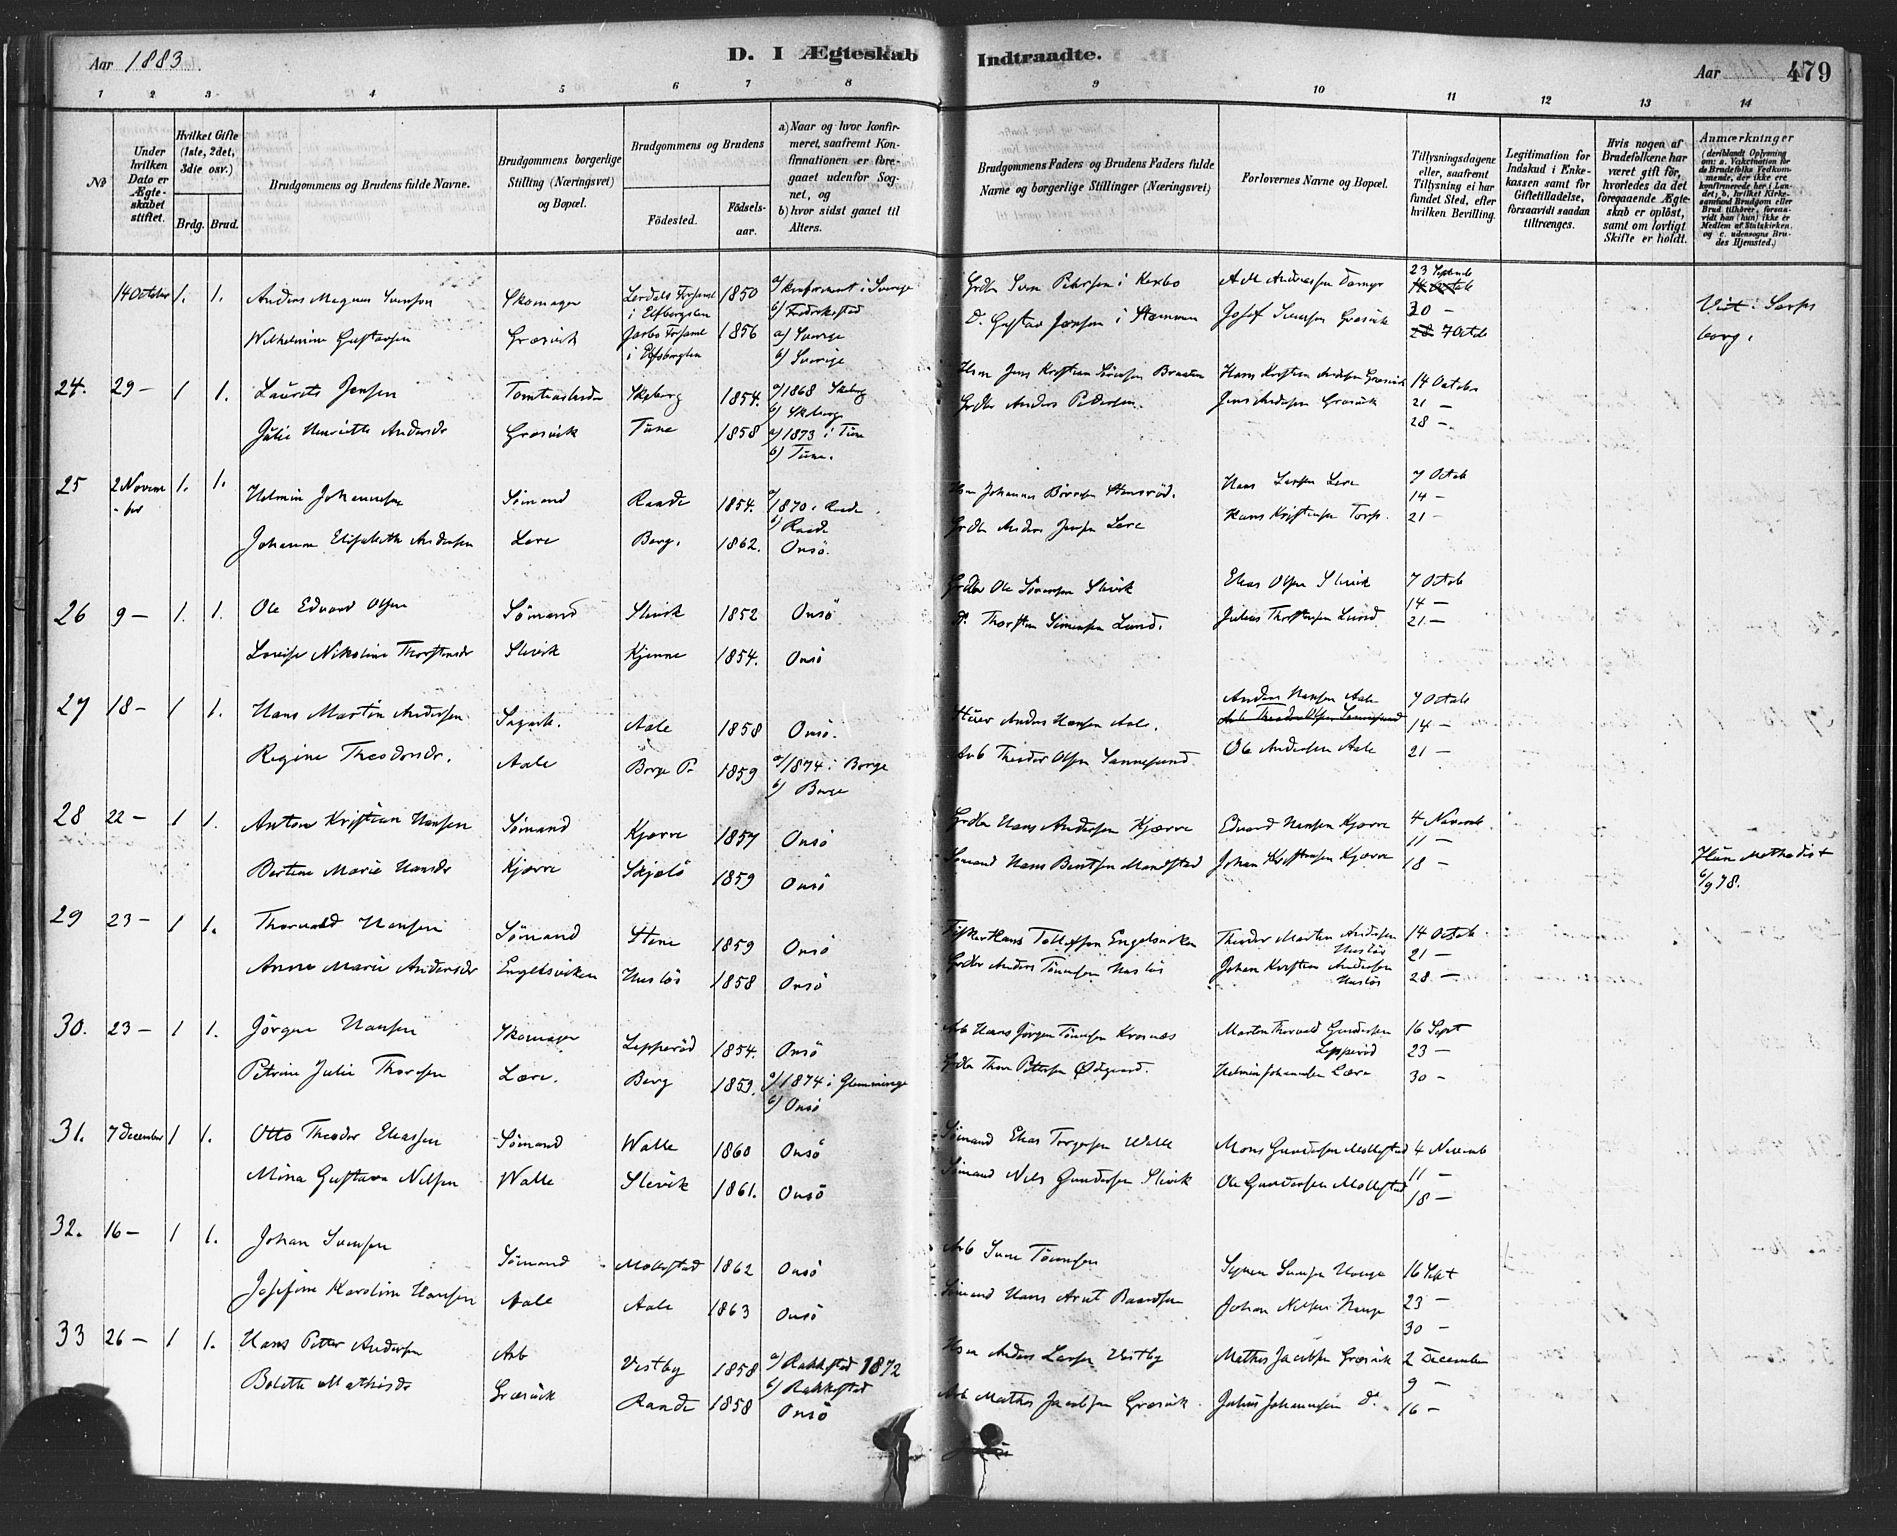 Aar 1883
D. I Ægteskab
Indtraadte.
Aar
479
1 2 3 4 5 6 7 8
9 10 11 12 13 14
No
Under hvilken Dato er Ægteskabet stiftet.
Hvilket Gifte (1ste, 2det, 3die osv.)
Brdg. Brud.
Brudgommens og Brudens fulde Navne.
Brudgommens borgerlige Stilling (Næringsvei) og Bopæl.
Brudgommens og Brudens
Fødested.
Fødselsaar.
a) Naar og hvor konfirmeret, saafremt Konfirmationen er foregaaet udenfor Sognet, og
b) hvor sidst gaaet til Alters.
Brudgommens Faders og Brudens Faders fulde Navne og borgerlige Stillinger (Næringsvei)
Forlovernes Navne og Bopæl.
Tillysningsdagene eller, saafremt Tillysning ei har fundet Sted, efter hvilken Bevilling.
Legitimation for Indskud i Enkekassen samt for Giftetilladelse, forsaavidt saadan tiltrænges.
Hvis nogen af Brudefolkene har været gift før, hvorledes da det foregaaende Ægteskab er opløst, samt om lovligt Skifte er holdt.
Anmærkninger
(deriblandt Oplysning om: a. Vakcination for de Brudefolks Vedkommende, der ikke ere konfirmerede her i Landet; b. hvilket Kirkesamfund Brudgom eller Brud tilhører, forsaavidt han (hun) ikke er Medlem af Statskirken. og c. udensogns Brudes Hjemsted.)
14 October 1. 1. Anders Magnus Svensson Skomager 1850 a) konfirmert i Sverige b) Fredrikstad Sven Petersen i 23 Septemb
Wilhelmine Gustavsen Græsvik 1856 a) Sverige b) Sverige D. Gustav Jansen i Josef Svensen Græsvik 30 – 7 Octb
Viet i Sarpsborg.
24. 29 – 1 1. Laurits Jensen Skeberg 1854. a) 1868 Skeberg b) Skeberg Hsm Jens Kristian Sørensen Braaten Hans Kristian Andersen Græsvik 14 Octobe
Julie Henriette Andersdr Græsvik Tune 1858 a) 1873 i Tune b) Tune. Grdbr Anders Pedersen Jens Andersen Græsvik 21 – 28 –
25 2 November 1. 1. Helmin Johannesen Sømand Raade 1854. a) 1870 i Raade b) Raade Hsm Johannes Hans Larsen Lere 7 Octob 14 –
Johanne Elisabeth Andersen Lere Berg. 1862. Onsö. Grdbr Anders Jensen Lere Hans Kristensen Torp. 21 –
26 9 – 1. 1. Ole Edvard Olsen Sømand Slevik 1852 Onsö Grdbr Ole Sörensen Slevik Elias Olsen Slevik 7 Octob 14 –
Lovise Nikoline Thorstensdr Slevik Kjenne 1854. Onsö D. Thorsten Simensen Lund. Julius Thorstensen Lund. 21 –
27 18 – 1 1. Hans Martin Andersen Sagarb. Aale 1858 Onsö. Anders Hansen Aale. Anders Hansen Aale 7 Octob 14 –
Regine Theodorsdr. Aale Borge P. 1859 a) 1874 i Borge b) Borge Arb Theodor Olsen Sannesund Ole Andersen Aale 21 –
28 22 – 1 1. Anton Kristian Hansen Sømand Kjærre 1857 Onsö Grdbr Hans Andersen Kjærre Edvard Hansen Kjærre 4 Novemb. 11 –
Bertine Marie Hansdr Kjærre Skjelö 1859 Onsö Sømand Hans Bentsen Mandstad Johan Kristensen Kjærre 18 – Hun Methodist 6/9 78.
29 23 – 1 1. Thorvald Hansen Sømand Stene 1859 Onsö Fisker Hans Tollefsen Engelsviken Theodor Martin Andersen Huslös 14 Octob 21 –
Anne Marie Andersdr Engelsviken Huslös 1858 Onsö Grdbr Anders Tønnesen Huslös Johan Kristian Andersen Huslös 28 –
30. 23 – 1 1. Jörgen Hansen Skomager Lepperöd 1854. Onsö Arb Hans Jörgen Tönnesen Krosnæs Martin Thorvald Gundersen Lepperöd 16 Sept 23 –
Petrine Julie Thoresen Lære. Berg 1853. a) 1874 i Glemminge b) Onsö Grdbr Thore Pettersen Ødegaard. Helmin Johannesen Lære 30 –
31. 7 December 1 1. Otto Theodor Eliassen Sømand Walle 1860 Onsö Sømand Elias Torgersen Walle Mons Gundersen Mollestad 4 Novemb
Mina Gustava Nilsen Walle Slevik 1861. Onsö Sømand Nils Gundersen Slevik Ole Gundersen Mollestad 11 – 18 –
32. 16 – 1 1. Johan Svensen Sømand Mollestad 1862 Onsö Arb Sven Tönnesen Syver Svensen Hauge 16 Sept
Josefine Karoline Hansen Aale Aale 1863 Onsö Sömand Hans Arnt Baardsen Johan Nilsen Hauge 23 – 30 –
33 26 – 1 1. Hans Petter Andersen Arb Vestby 1858 a) Rakkestad 1872 b) Rakkestad Hsm Anders Larsen Vestby Mathis Jacobsen Græsvik 2 December 9 –
Bolette Mathisdr Græsvik Raade 1858 Onsö Arb Mathis Jacobsen Græsvik. Julius Johannesen D. 16 –